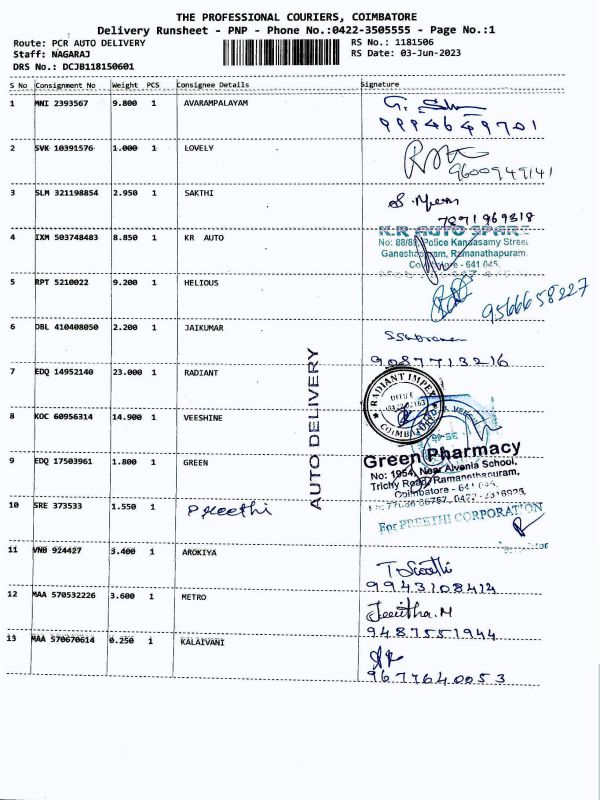 THE PROFESSIONAL COURIERS, COIMBATORE
Delivery Runsheet - PNP - Phone No.:0422-3505555 - Page No.:1
Route: PCR AUTO DELIVERY
RS No.: 1181506
Staff: NAGARAJ
RS Date: 03-Jun-2023
DRS No.: DCJB118150601
S No Consignment No Weight PCS Consignee Details Signature
1 MNI 2393567 9.800 1 AVARAMPALAYAM
9994649701
2 SVK 10391576 1.000 1 LOVELY
9600949141
3 SLM 321198854 2.950 1 SAKTHI
7871969318
4 IXM 503748483 8.850 1 KR AUTO
K.R AUTO SPARE
No: 88/89, Police Kandasamy Street
Ramanathapuram.
- 641 045.
5 RPT 5210022 9.200 1 HELIOUS
9566658227
6 DBL 410408050 2.200 1 JAIKUMAR
9087713216
7 EDQ 14952140 23.000 1 RADIANT
RADIANT IMPEX
COIMBATORE
8 KOC 60956314 14.900 1 VEESHINE
AUTO DELIVERY
9 EDQ 17503961 1.800 1 GREEN
Green Pharmacy
No: 1954, Near Alvenia School,
Trichy Road, Ramanathapuram,
Coimbatore - 641
10 SRE 373533 1.550 1 Preethi
For PREETHI CORPORATION
11 VNB 924427 3.400 1 AROKIYA
9943108414
12 MAA 570532226 3.600 1 METRO
Jeevitha.M
9487551944
13 MAA 570670614 0.250 1 KALAIVANI
9677640053